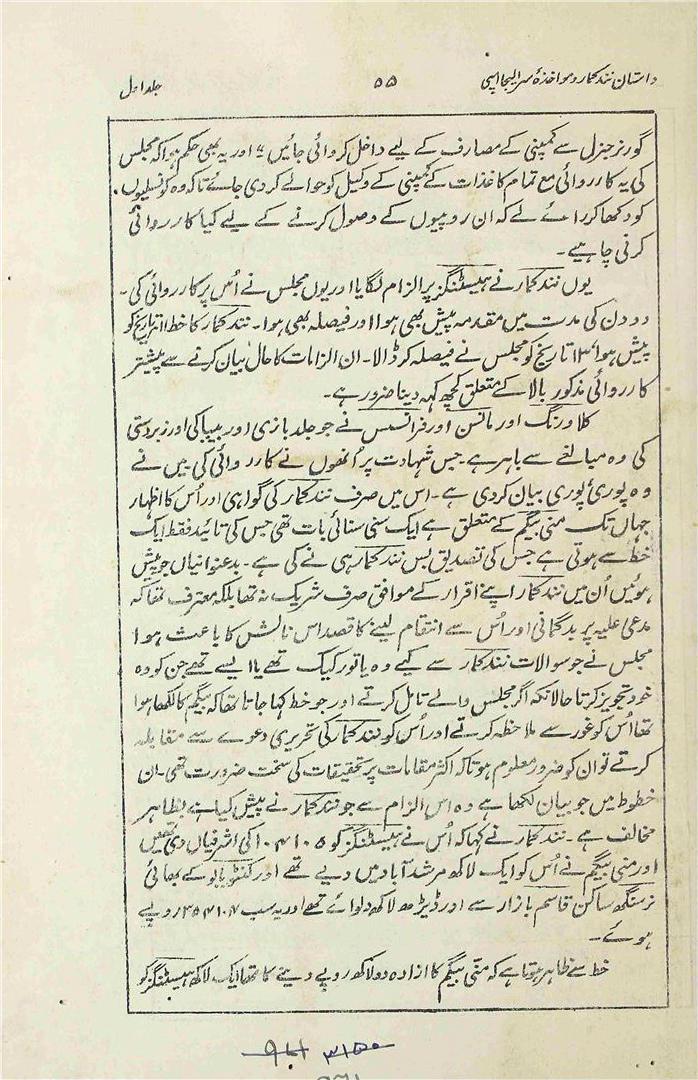 داستان نند کمار و مواخذۂ سر الیجا امپی ۵۵ جلد اول
گورنر جنرل سے کمپنی کے مصارف کے لیے داخل کروائی جائیں" اور یہ بھی حکم ہوا کہ مجلس
کی یہ کارروائی مع تمام کاغذات کے کمپنی کے وکیل کو حوالے کر دی جائے تاکہ وہ کونسلیوں
کو دکھا کر رائے لے کہ ان روپیوں کے وصول کرنے کے لیے کیا کارروائی
کرنی چاہیے۔
یوں نند کمار نے ہیسٹنگز پر الزام لگایا اور یوں مجلس نے اُس پر کارروائی کی۔
دو دن کی مدت میں مقدمہ پیش بھی ہوا اور فیصلہ بھی ہوا۔ نند کمار کا خط ۱۱ تاریخ کو
پیش ہوا ۱۳ تاریخ کو مجلس نے فیصلہ کر ڈالا۔ ان الزامات کا حال بیان کرنے سے پیشتر
کارروائی مذکور بالا کے متعلق کچھ کہہ دینا ضرور ہے۔
کلاورنگ اور مانسن اور فرانسس نے جو جلد بازی اور بیباکی اور زبردستی
کی وہ مبالغے سے باہر ہے۔ جس شہادت پر اُنھوں نے کارروائی کی میں نے
وہ پوری پوری بیان کر دی ہے۔ اس میں صرف نند کمار کی گواہی اور اُس کا اظہار
جہاں تک منی بیگم کے متعلق ہے ایک سنی سنائی بات تھی جس کی تائید فقط ایک
خط سے ہوتی ہے جس کی تصدیق بس نند کمار ہی نے کی ہے۔ بدعنوانیاں جو پیش
ہوئیں اُن میں نند کمار اپنے اقرار کے موافق صرف شریک نہ تھا بلکہ معترف تھا کہ
مدعی علیہ پر بدگمانی اور اُس سے انتقام لینے کا قصد اس نالش کا باعث ہوا
مجلس نے جو سوالات نند کمار سے کیے وہ یا تو رکیک تھے یا ایسے تھے جن کو وہ
خود تجویز کرتا حالانکہ اگر مجلس والے تامل کرتے اور جو خط کہا جاتا تھا کہ بیگم کا لکھا ہوا
تھا اُس کو غور سے ملاحظہ کرتے اور اُس کو نند کمار کی تحریری دعوے سے مقابلہ
کرتے تو ان کو ضرور معلوم ہوتا کہ اکثر مقامات پر تحقیقات کی سخت ضرورت تھی۔ ان
خطوط میں جو بیان لکھا ہے وہ اس الزام سے جو نند کمار نے پیش کیا ہے بظاہر
مخالف ہے۔ نند کمار نے کہا کہ اُس نے ہیسٹنگز کو ۱۰۴۱۰۵ کی اشرفیاں دی تھیں
اور منی بیگم نے اُس کو ایک لاکھ مرشد آباد میں دیے تھے اور کنٹو بابو کے بھائی
نرسنگھ ساکن قاسم بازار سے اور ڈیڑھ لاکھ دلوائے تھے اور یہ سب ۳۵۴۱۰۷ روپیے
ہوئے۔
خط سے ظاہر ہوتا ہے کہ منی بیگم کا ارادہ دو لاکھ روپے دینے کا تھا ایک لاکھ ہیسٹنگز کو